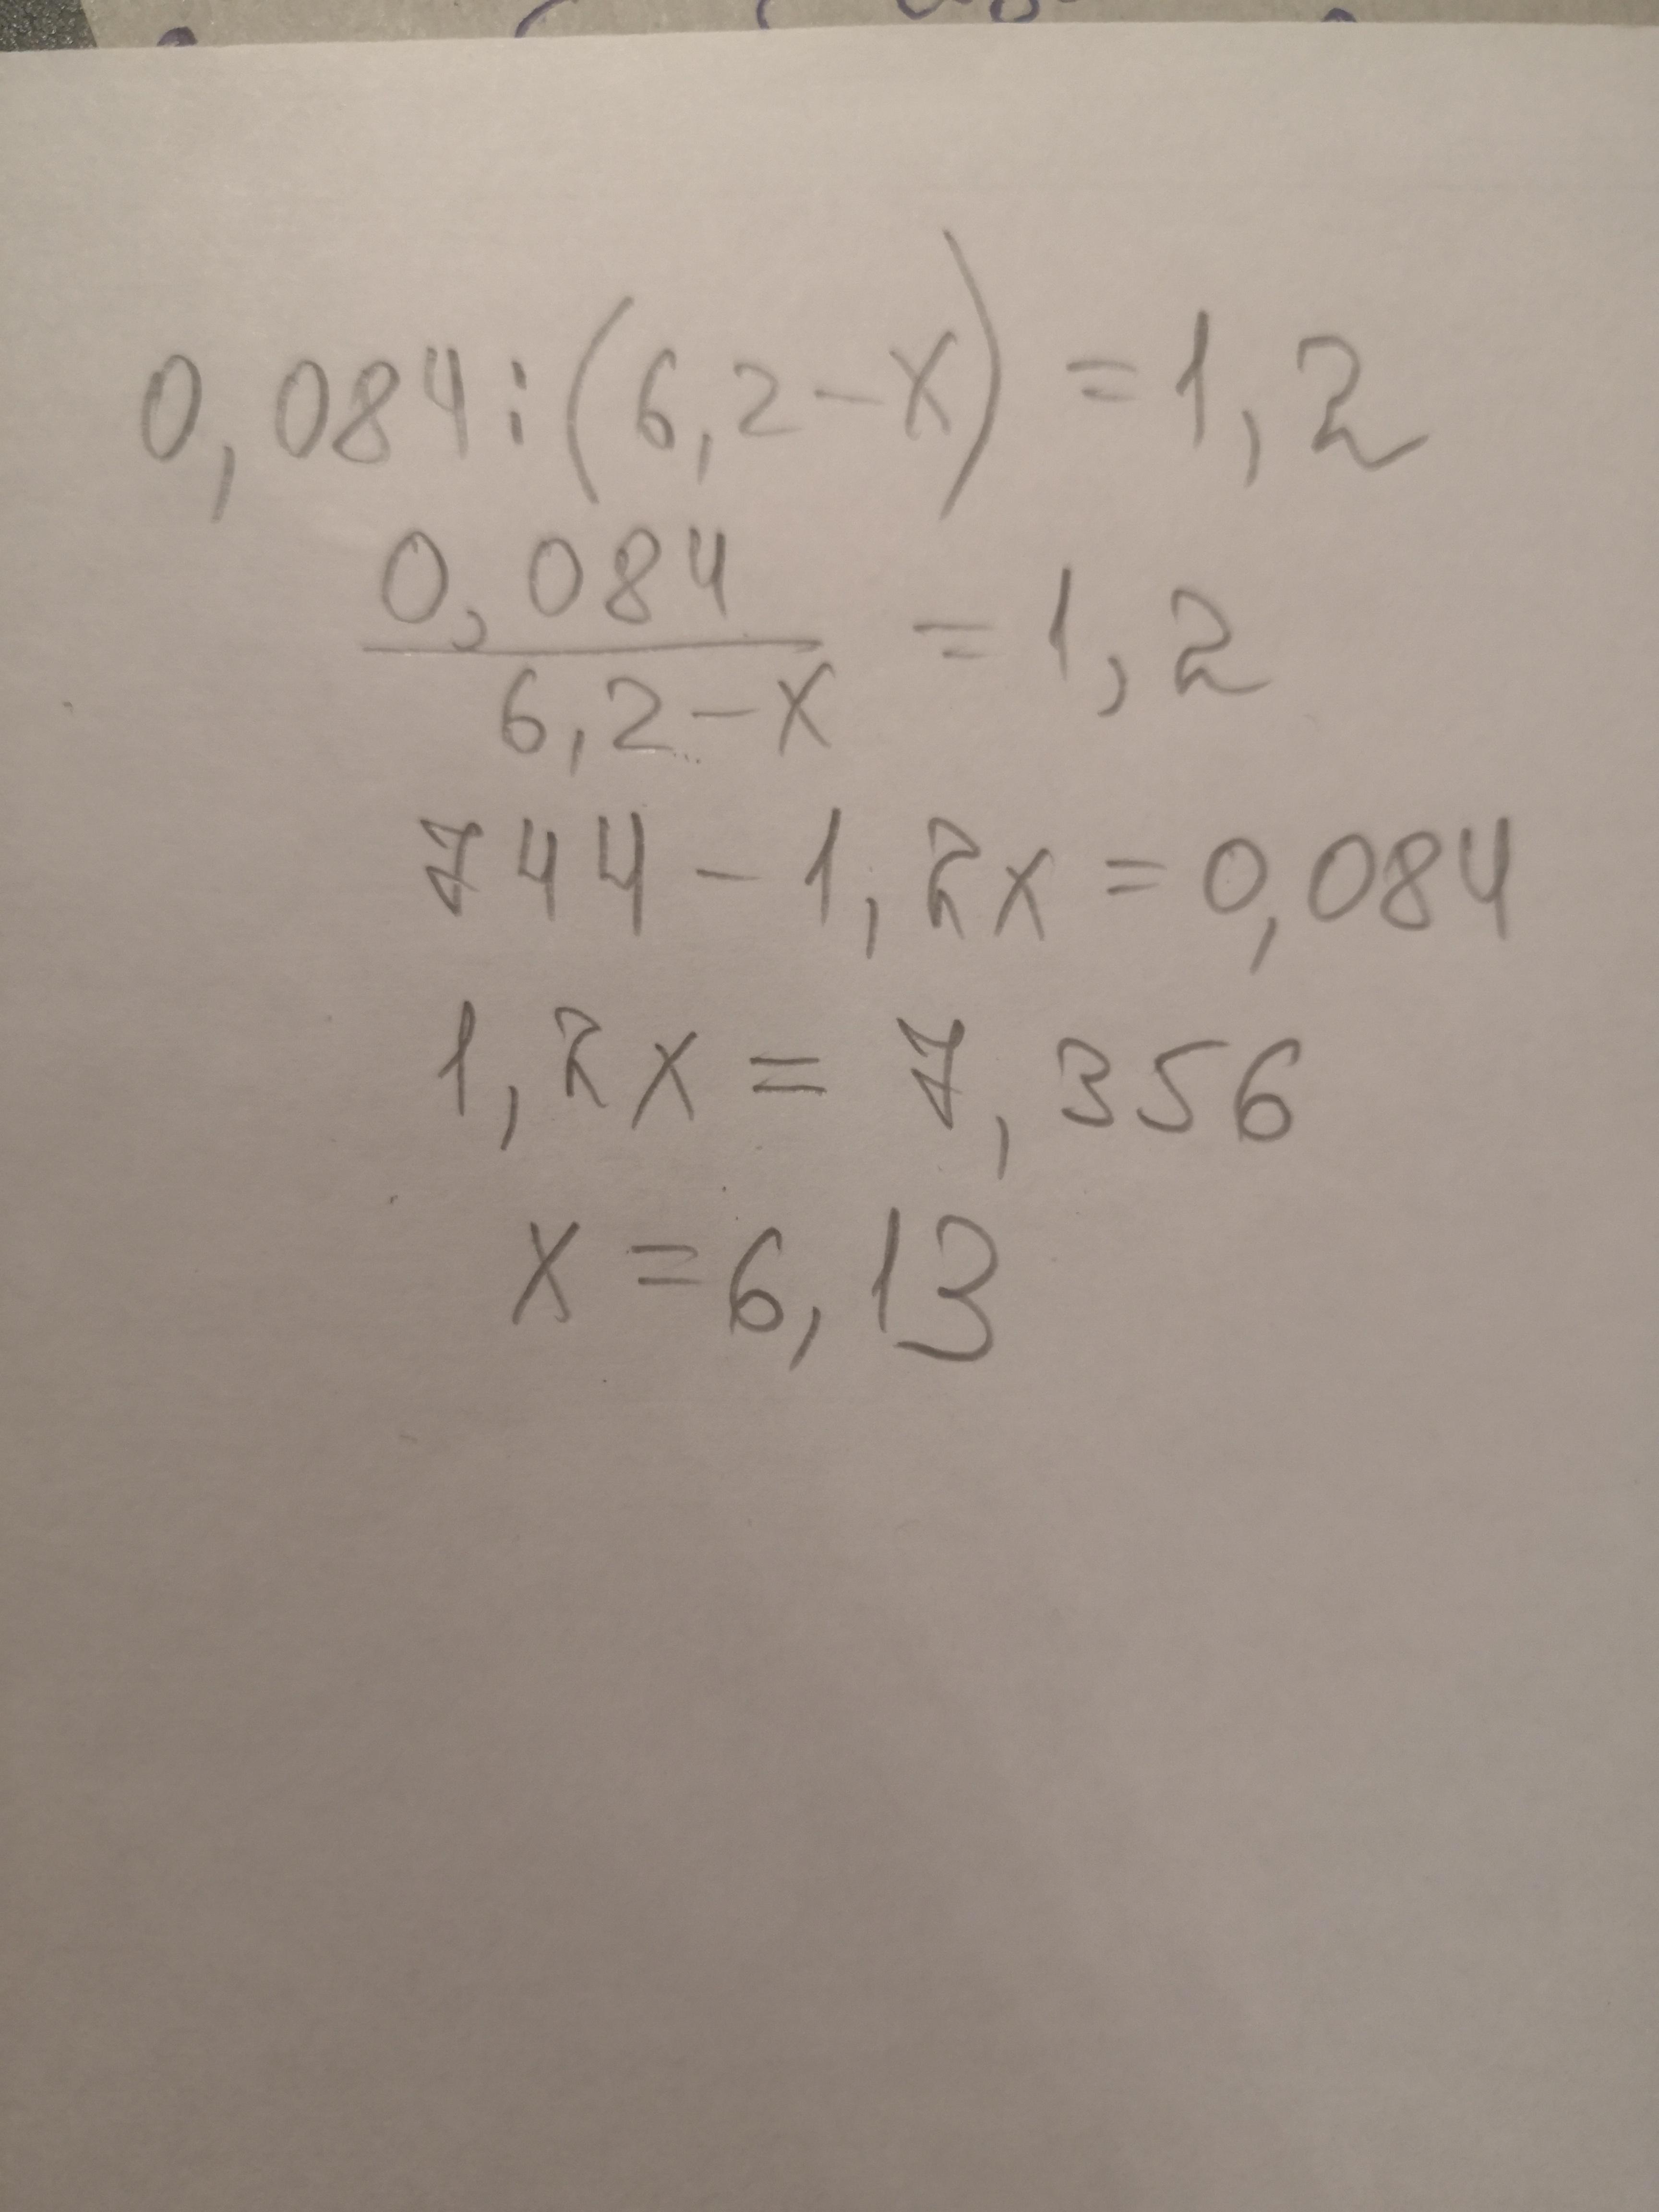 0,084:(6,2-x)=1,2
0,084
6,2-x
=1,2
744-1,2x=0,084
1,2x=7,356
x=6,13